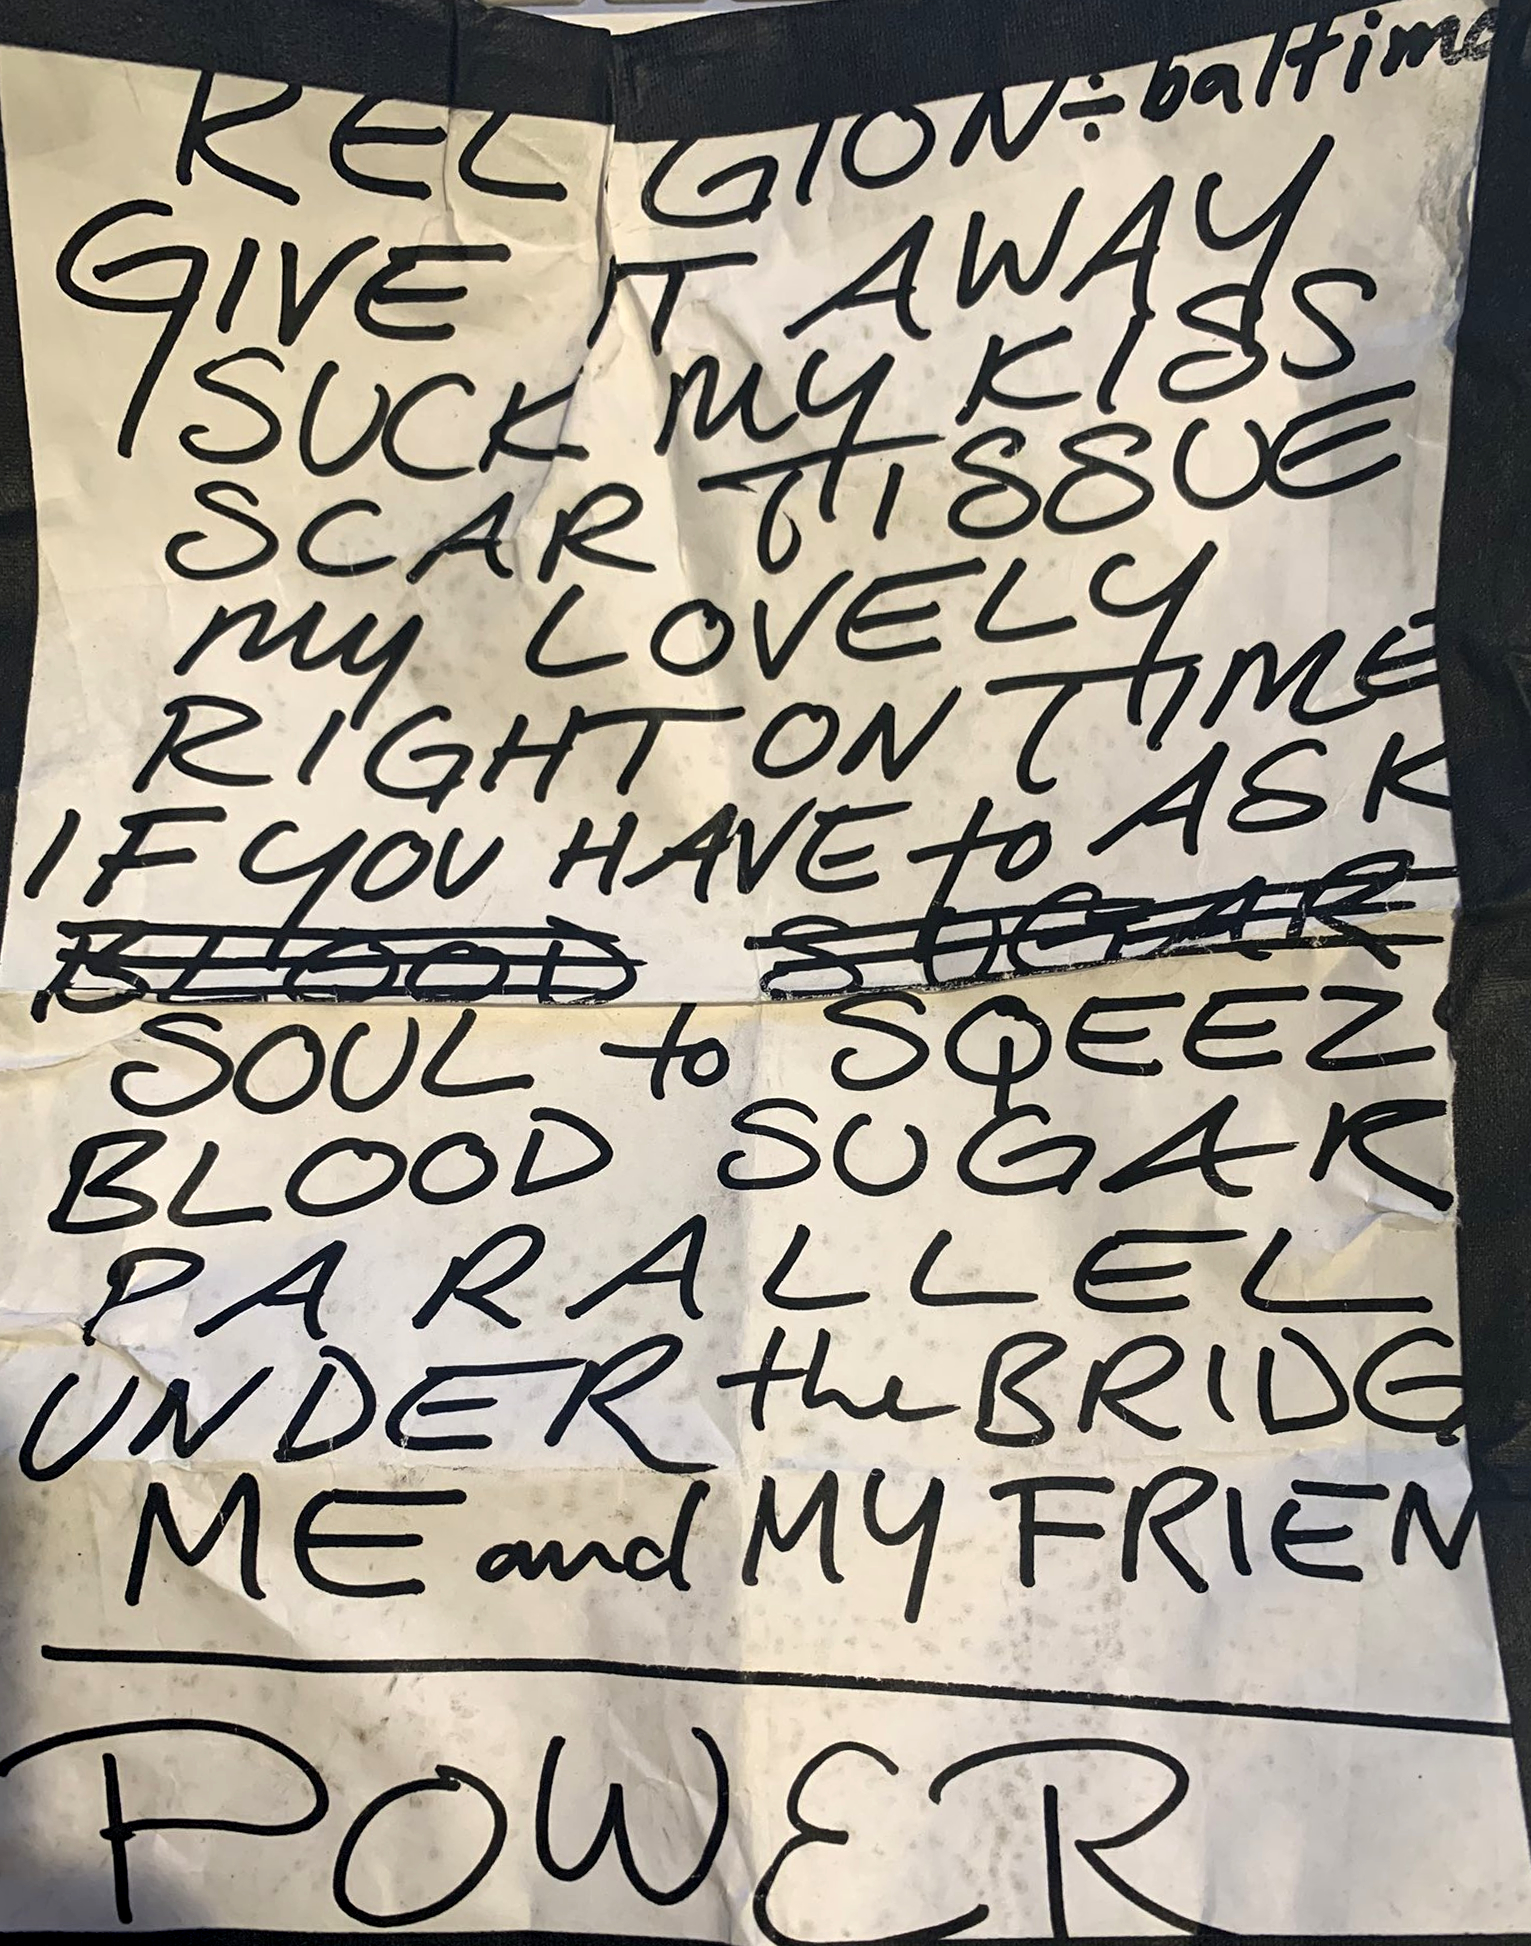 RELIGION ÷ baltimo
GIVE IT AWAY
SUCK MY KISS
SCAR TISSUE
MY LOVELY
RIGHT ON TIME
IF YOU HAVE to ASK
BLOOD SUGAR
SOUL to SQEEZ
BLOOD SUGAR
PARALLEL
UNDER the BRIDG
ME and MY FRIEN
POWER